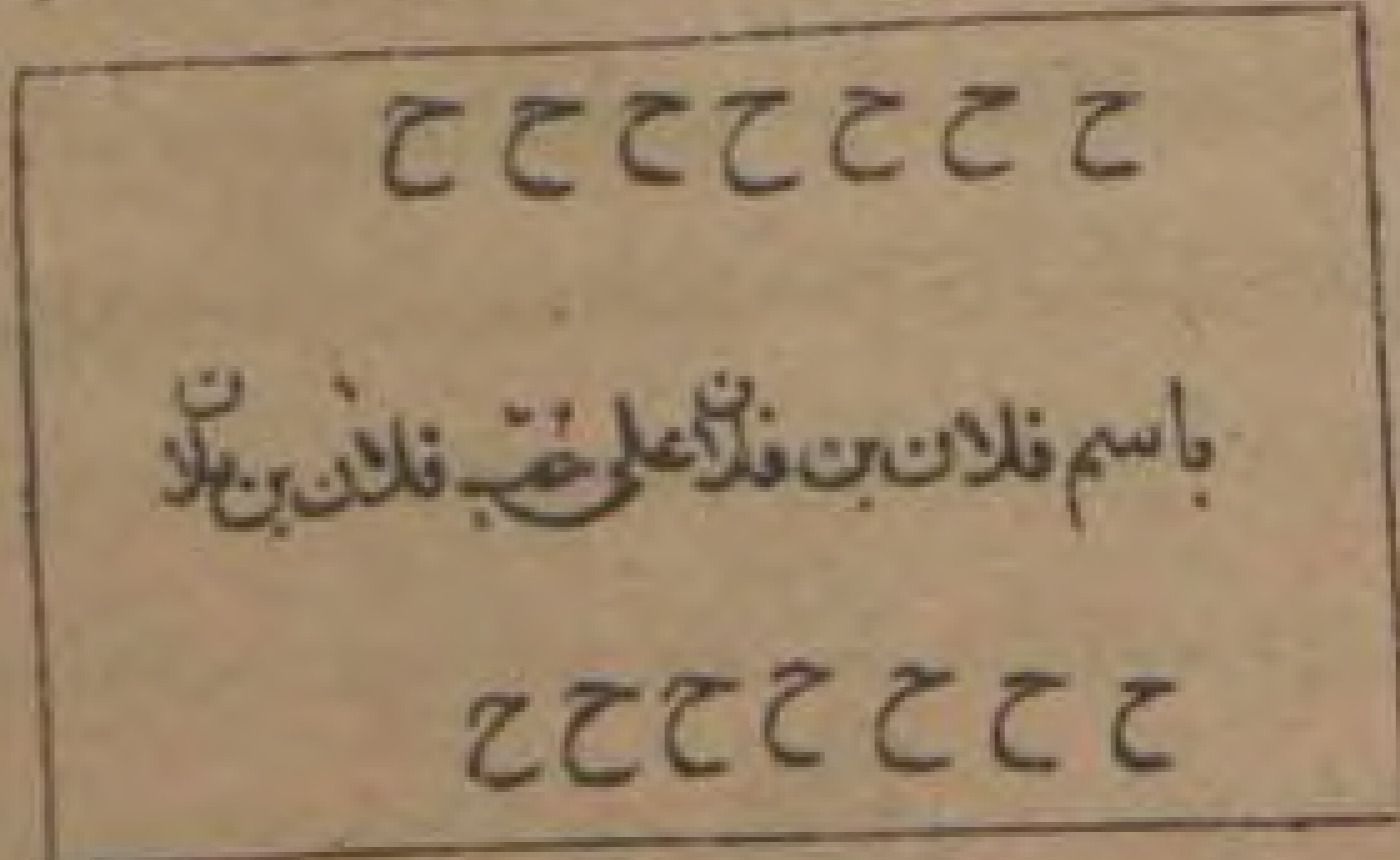 ح ح ح ح ح ح ح
باسم فلان بن فلان على حب فلان بن فلان
ح ح ح ح ح ح ح